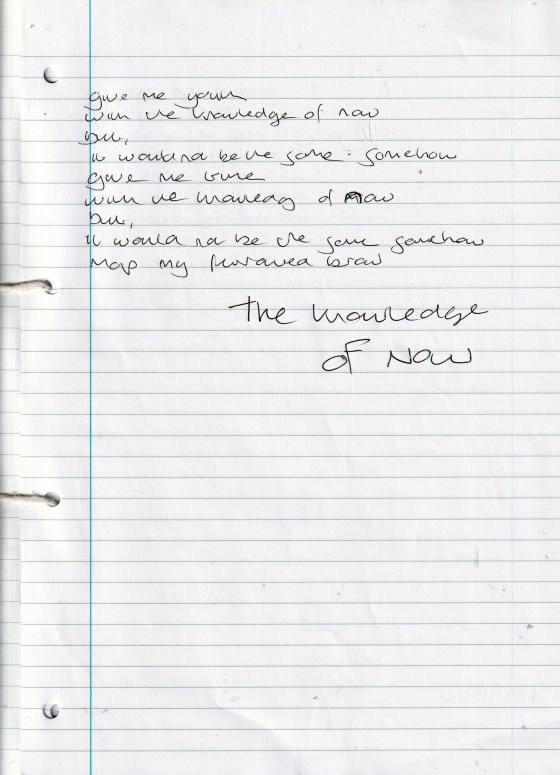 give me youth
with the knowledge of now
but,
it would not be the same - somehow
give me time
with the knowledge of now
but,
it would not be the same somehow
map my furrowed brow
The knowledge
of Now